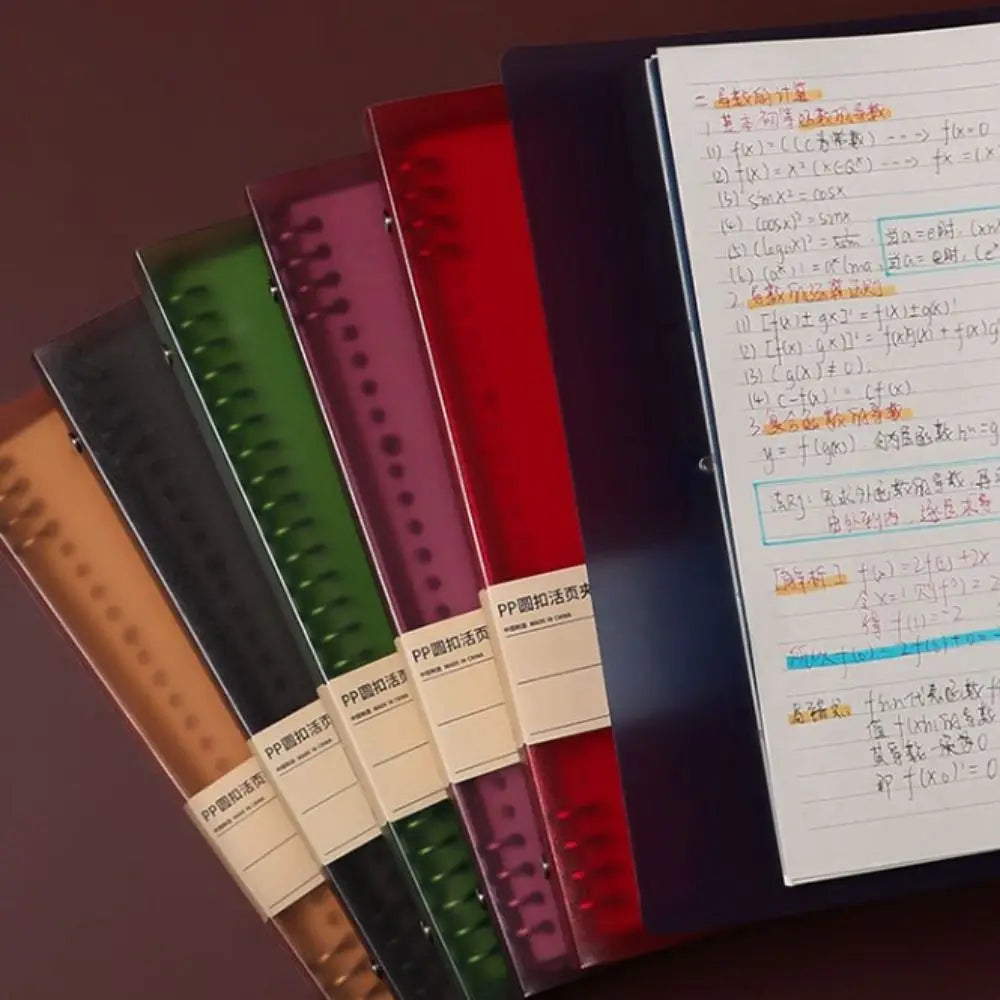 二 导数的计算
1 基本初等函数的导数
(1) f(x)=C(C为常数) ---> f(x=0
(2) f(x)=x²(x∈Q*) ---> fx=(x
(3) sinx²=cosx
(4) (cosx)²=sinx
(5) (logax)²=
当a=e时, (xn
(6) (aˣ)'=aˣlna
当a=e时, (e
2. 导数的运算法则
(1) [f(x)±gx]'=f(x)±g(x)'
(2) [f(x)·gx)]'=f(x)g(x)+f(x)g
(3) (g(x)≠0);
(4) c-f(x)'=cf(x)
3 复合函数的导数
y=f(g(x)). 令内层函数h=g
法则: 先求外函数的导数, 再
由外到内, 逐层求导
f(x)=2f(1)+2x
令x=1 则f'()=2
得 f(1)=-2
fhn代表函数f
值 f(xh)的导数
其导数一定为0
即f(x₀)'=0
PP圆扣活页夹
中国制造 MADE IN CHINA
PP圆扣活页
中国制造 MADE IN CHINA
PP圆扣活页
中国制造 MADE IN CHINA
PP圆扣活页
中国制造 MADE IN CHINA
PP圆扣活页
中国制造 MADE IN CHINA